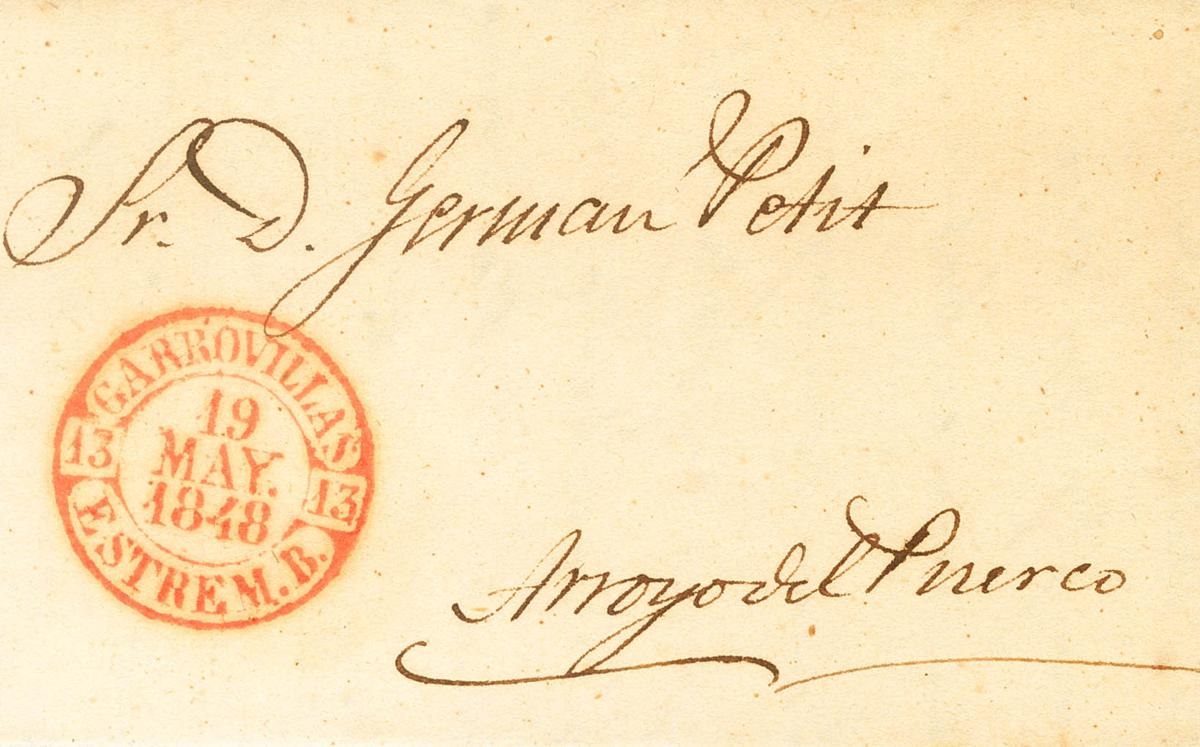 Sr. D. German Petit
GARROVILLAS
13
19
MAY.
1848
13
ESTREM. B.
Arroyo del Puerco